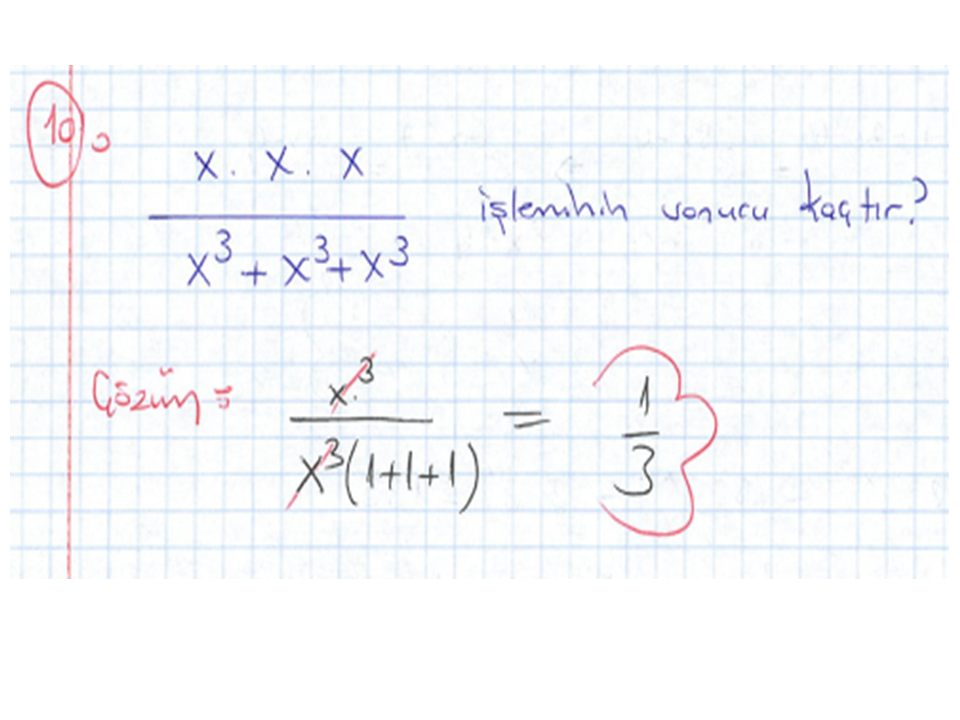 10.
x . x . x
x³ + x³ + x³
işleminin sonucu kaçtır?
Çözüm =
x.³
x³(1+1+1)
=
1
3